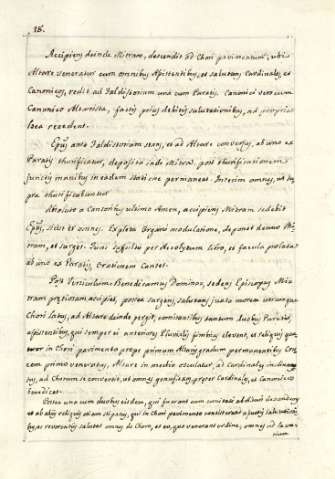 18.
Accipiens deinde Mitram, descendit ad Chori pavimentum, ubi
Altare veneratur cum omnibus Assistentibus, et salutans Cardinales, et
Canonicos, redit ad Faldistorium una cum Paratis. Canonici vero cum
Canonico Altarista, factis prius debitis salutationibus, ad propria
loca recedent.
Epus ante Faldistorium stans, et ad Altare conversus, ab uno ex
Paratis thurificatur, deposita Mitra. post thurificationem
junctis manibus in eadem statione permanet. Interim omnes, ut su
pra thurificabuntur
Absoluto a Cantoribus ultimo Amen, accipiens Mitram sedebit
Epus, sicut et omnes. Expleta Organi modulatione, deponet denuo Mi
tram, et surget. Tunc per Acolytum libro, et facula
ab uno ex Paratis Orationem Cantet.
Post Versiculum Benedicamus Domino, sedens Episcopus Mi
tram pretiosam accipiet, postea surgens, salutans juxta morem utrumque
Chori latus, ad Altare deinde pergit, comitantibus tantum duobus Paratis
assistentibus, qui semper ei anteriores Pluvialis fimbrias elevent, et reliquis qua
tuor in Chori pavimento prope primum Altaris gradum permanentibus Cru
cem primo veneratus, Altare in medio osculatur, ad Cardinales
ad Chorum se convertit, ut omnes genuflexi, præter Cardinales, et Canonicos
benedicat.
Postea una cum duobus eisdem, qui
et ab aliis reliquis etiam stipatus, qui in Chori pavimento
ac revocatis salutat omnes de Choro, et eo, quo venerant ordine, omnes ad